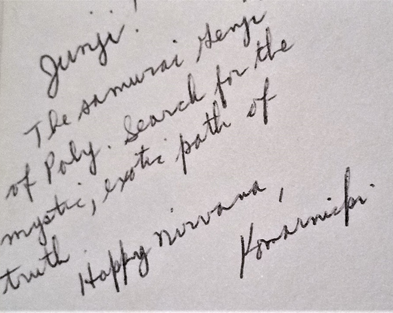 Junji!
The samurai Genji
of Poly. Search for the
mystic, exotic path of
truth
Happy nirvana,
Komarnicki.